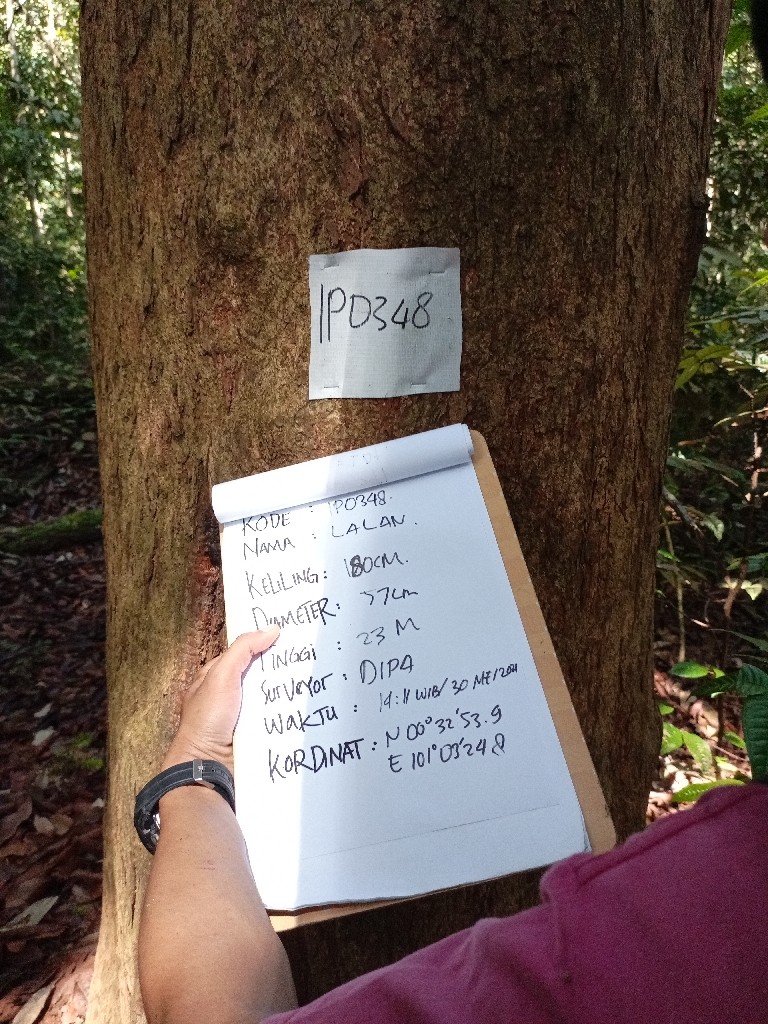 IPO348
KODE : IPO348.
NAMA : LALAN.
KELILING: 180CM.
DIAMETER: 57cm
TINGGI : 23 M
SURVEYOR : DIPA
WAKTU : 14:11 WIB/30 MEI 2021
KORDINAT : N 00° 32' 53.9
E 101° 03' 24.8